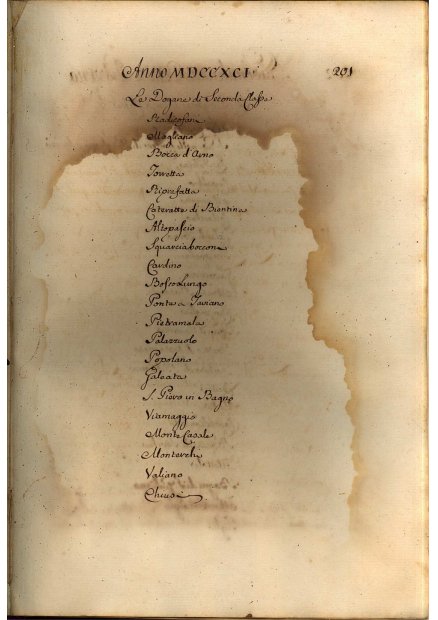 Anno MDCCXCI 201
Le Dogane di Seconda Classe
Radicofani
Magliano
Bocca d'Arno
Torretta
Ripafatta
Cateratte di Bientina
Altopascio
Squarciabocconi
Cardino
Boscolungo
Ponte a Taviano
Pietramala
Palazzuolo
Popolano
Galeata
S. Piero in Bagno
Viamaggio
Monte Casale
Monterchi
Valiano
Chiusi